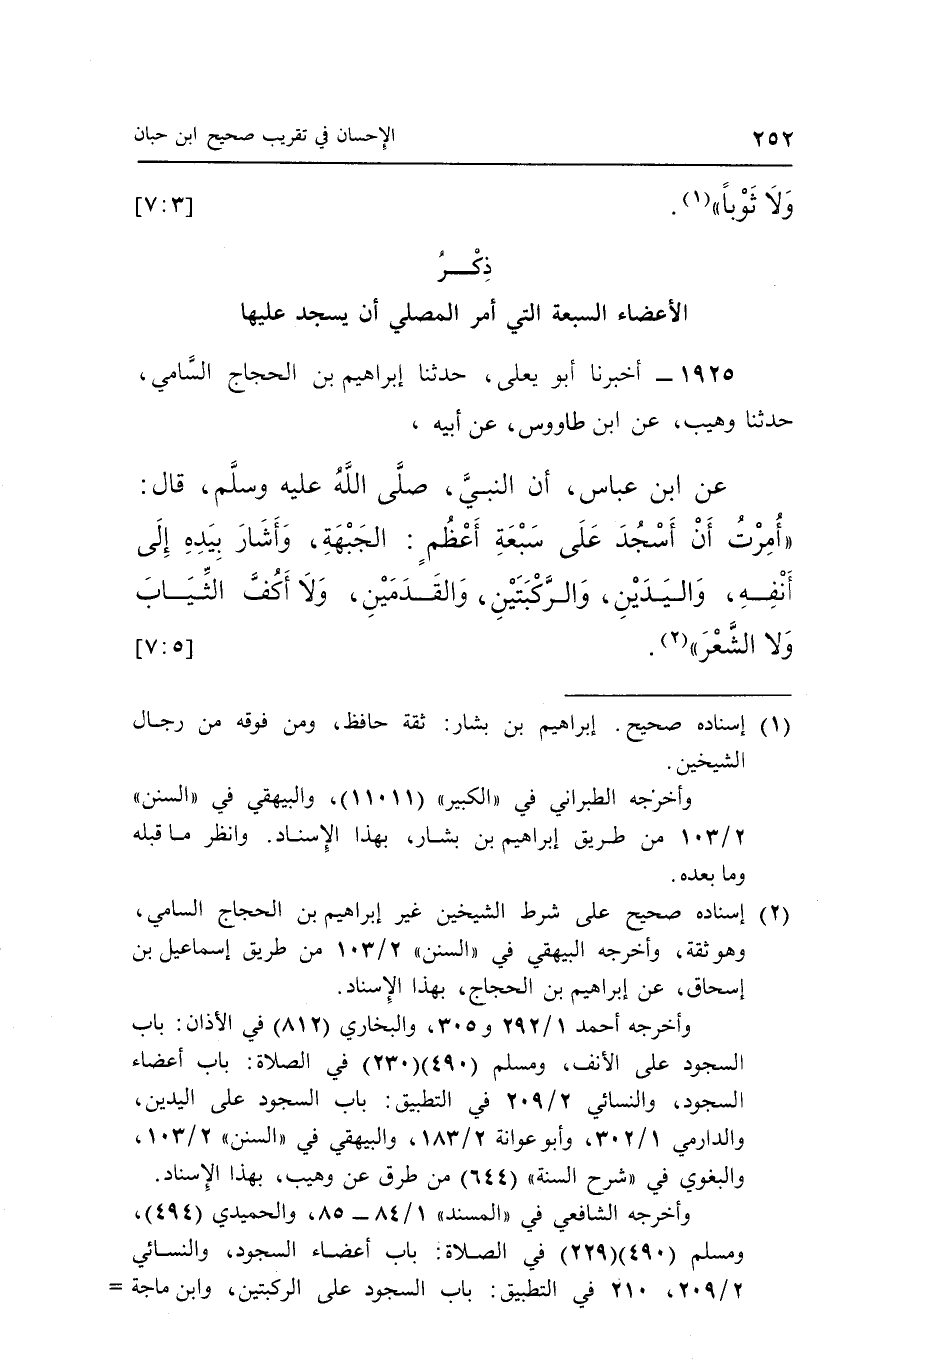 ٢٥٢ الإحسان في تقريب صحيح ابن حبان
وَلَا ثَوْباً»(١). [٧:٣]
ذِكْـــرُ
الأعضاء السبعة التي أمر المصلي أن يسجد عليها
١٩٢٥ ـ أخبرنا أبو يعلى، حدثنا إبراهيم بن الحجاج السَّامي،
حدثنا وهيب، عن ابن طاووس، عن أبيه ،
عن ابن عباس، أن النبيَّ، صلَّى اللَّهُ عليه وسلَّم، قال:
«أُمِرْتُ أَنْ أَسْجُدَ عَلَى سَبْعَةِ أَعْظُمٍ : الجَبْهَةِ، وَأَشَارَ بِيَدِهِ إِلَى
أَنْفِــهِ، وَالـيَـدَيْنِ، وَالـرُّكْبَتَيْنِ، وَالقَـدَمَيْنِ، وَلَا أَكُفَّ الثِّـيَــابَ
وَلا الشَّعْرَ»(٢). [٧:٥]
(١) إسناده صحيح. إبراهيم بن بشار: ثقة حافظ، ومن فوقه من رجال
الشيخين.
وأخرجه الطبراني في «الكبير» (١١٠١١)، والبيهقي في «السنن»
١٠٣/٢ من طريق إبراهيم بن بشار، بهذا الإسناد. وانظر ما قبله
وما بعده.
(٢) إسناده صحيح على شرط الشيخين غير إبراهيم بن الحجاج السامي،
وهو ثقة، وأخرجه البيهقي في «السنن» ١٠٣/٢ من طريق إسماعيل بن
إسحاق، عن إبراهيم بن الحجاج، بهذا الإسناد.
وأخرجه أحمد ٢٩٢/١ و٣٠٥، والبخاري (٨١٢) في الأذان: باب
السجود على الأنف، ومسلم (٤٩٠)(٢٣٠) في الصلاة: باب أعضاء
السجود، والنسائي ٢٠٩/٢ في التطبيق: باب السجود على اليدين،
والدارمي ٣٠٢/١، وأبو عوانة ١٨٣/٢، والبيهقي في «السنن» ١٠٣/٢،
والبغوي في «شرح السنة» (٦٤٤) من طرق عن وهيب، بهذا الإسناد.
وأخرجه الشافعي في «المسند» ٨٤/١ ـ ٨٥، والحميدي (٤٩٤)،
ومسلم (٤٩٠)(٢٢٩) في الصلاة: باب أعضاء السجود، والنسائي
٢٠٩/٢، ٢١٠ في التطبيق: باب السجود على الركبتين، وابن ماجة =